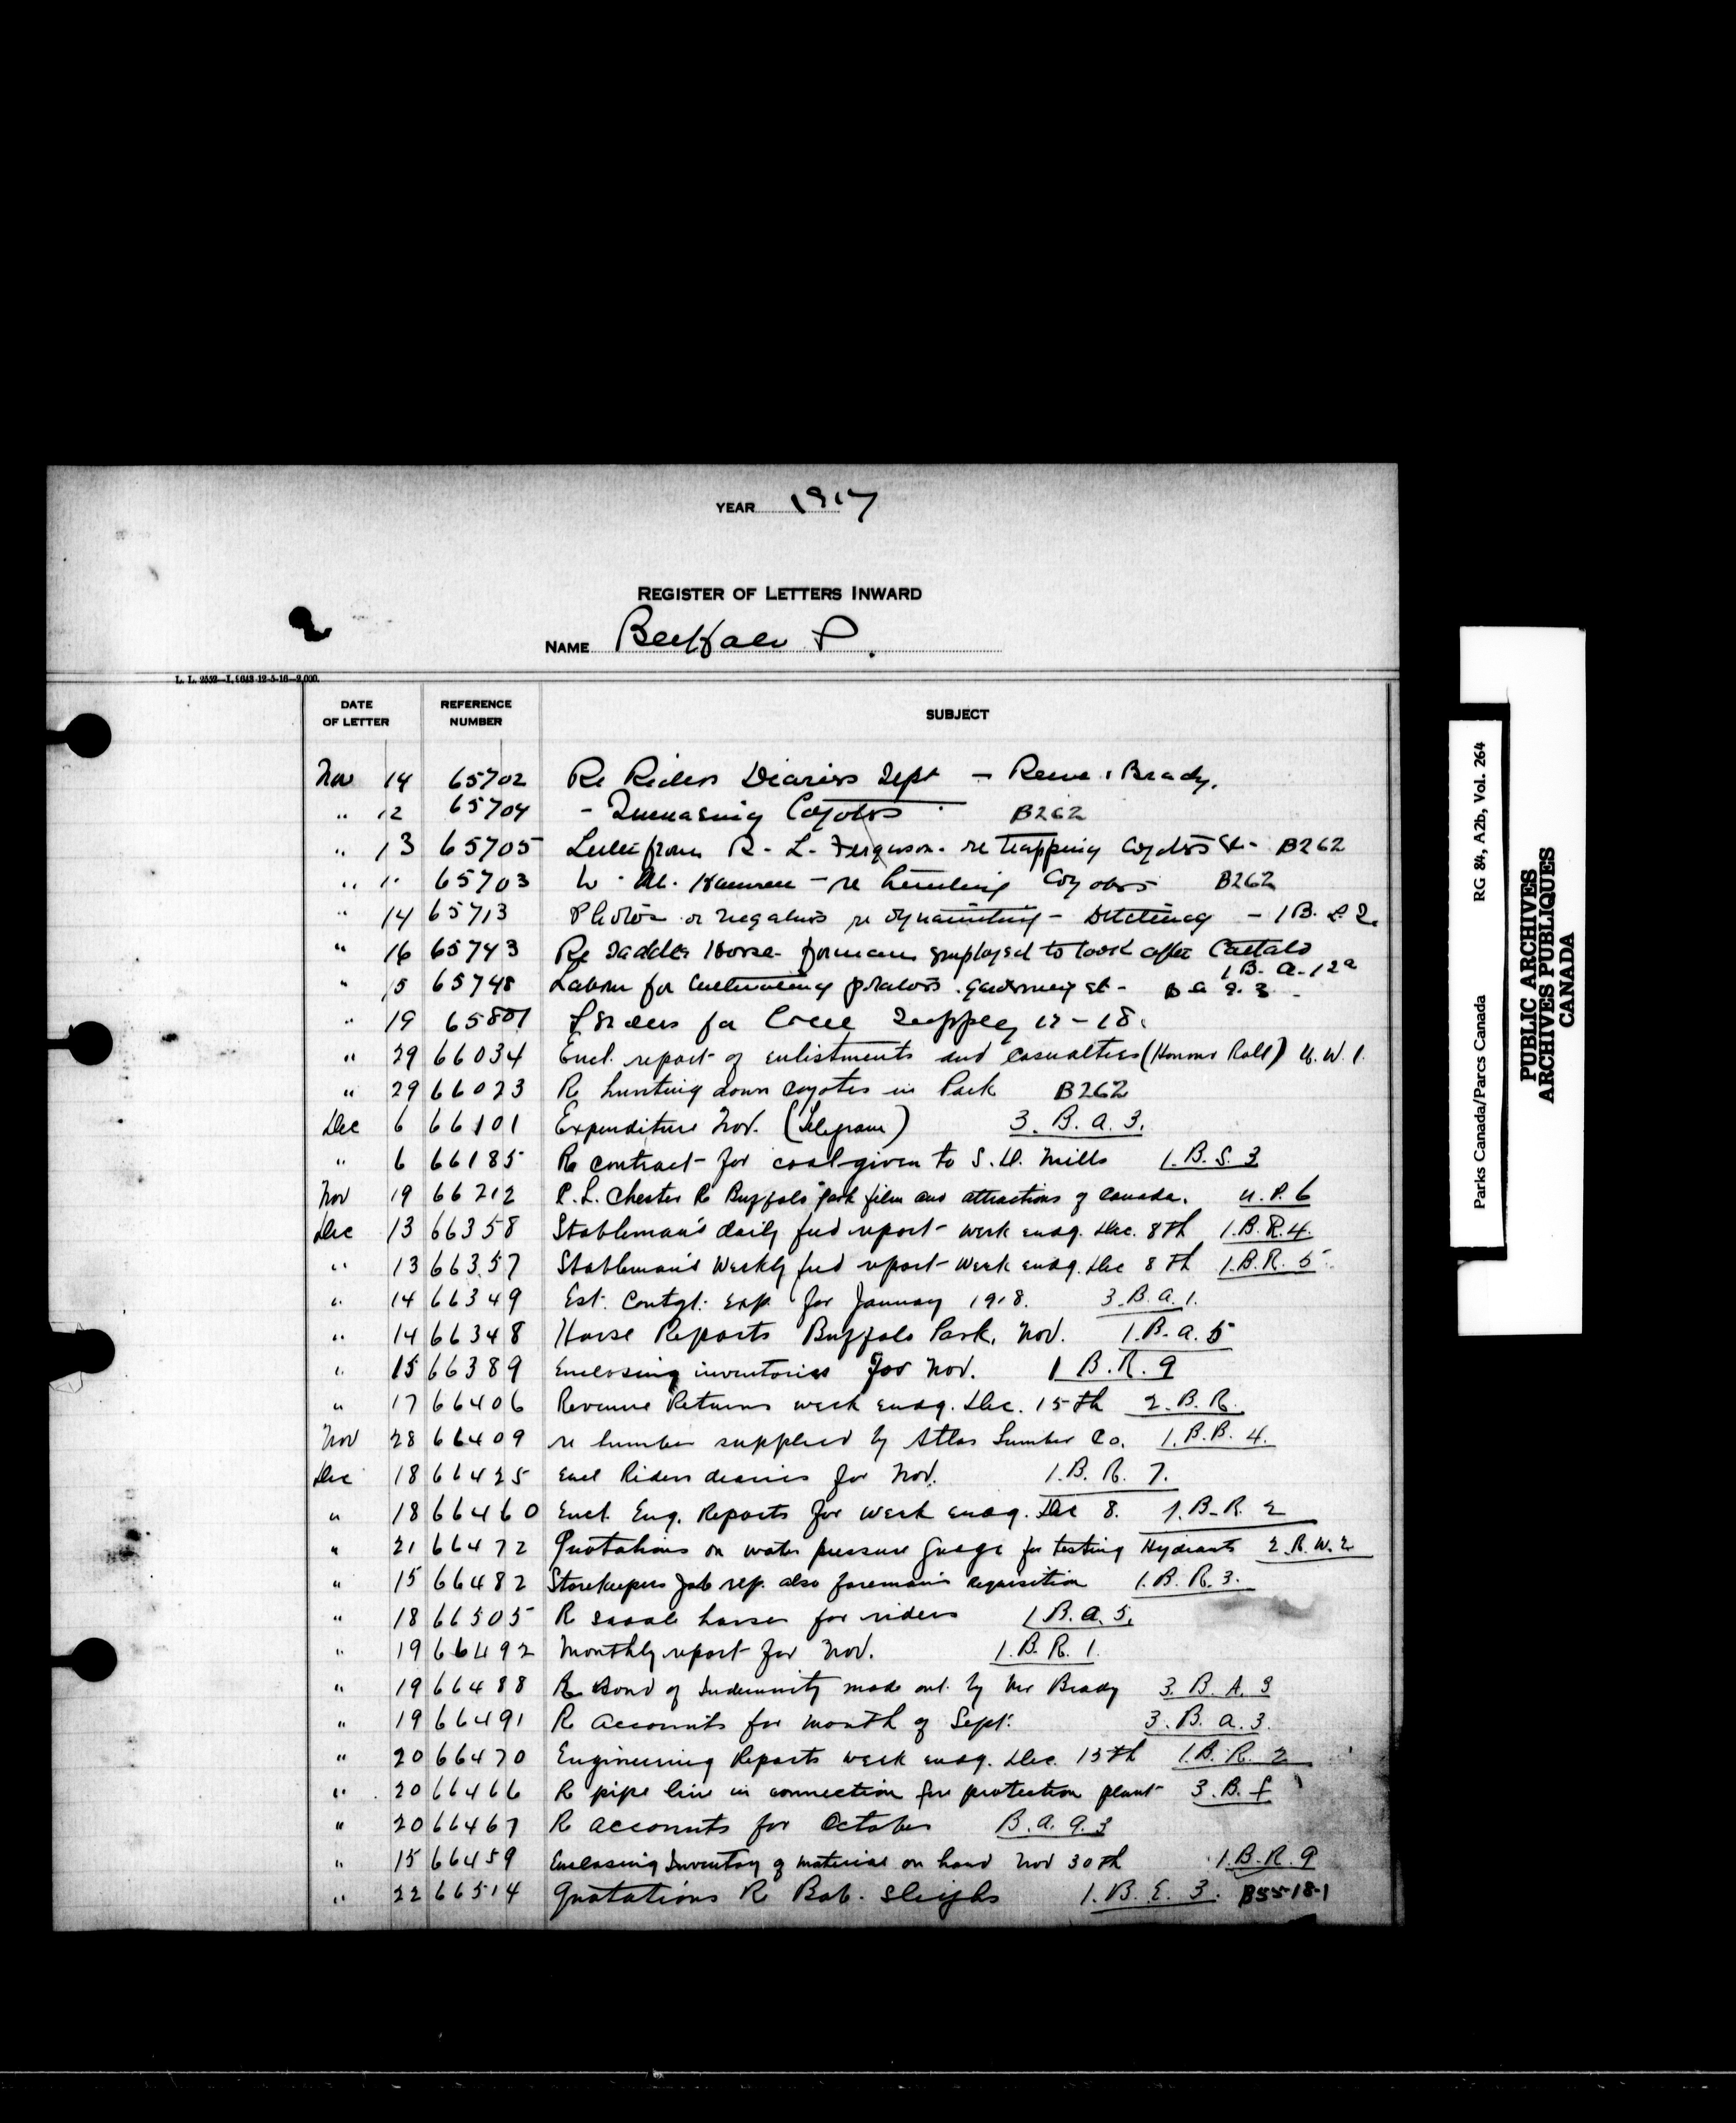 YEAR 1917
REGISTER OF LETTERS INWARD
NAME Buffalo P.
L. L. 2552—L. 5043 12-5-16—2,000.
DATE OF LETTER REFERENCE NUMBER SUBJECT
Nov 14 65702 Re Riders Diaries Sept - Reeve & Brady.
" 12 65704 - Increasing Coyotes B262
" 13 65705 Letter from R. L. Ferguson. re trapping Coyotes &c- B262
" " 65703 re hunting Coyotes B262
" 14 65713 Photos or negatives re dynamiting - Ditching - 1B. S 2.
" 16 65743 Re Saddle Horse foreman employed to look after Cattalo 1 B. a. 12a
" 15 65748 Labour for cultivating potatoes . gardening &c - B a 9. 3 -
" 19 65801 Tenders for Coal Supply 17-18.
" 29 66034 Encl. report of enlistments and casualties (Honour Roll) U. W. 1.
" 29 66023 R hunting down coyotes in Park B262
Dec 6 66101 Expenditure Nov. (Telegram) 3. B. a. 3.
" 6 66185 R contract for coal given to S. D. Mills 1. B. S. 3
Nov 19 66212 P. L. Chester R Buffalo Park film and attractions of Canada. U. P. 6
Dec 13 66358 Stableman's daily feed report- week endg. Dec. 8th 1. B. R. 4.
" 13 66357 Stableman's Weekly feed report- week endg. Dec 8th 1. B. R. 5
" 14 66349 Est. Contgt. Exp. for January 1918. 3. B. a. 1.
" 14 66348 Horse Reports Buffalo Park, Nov. 1. B. a. 5
" 15 66389 Enclosing inventories for Nov. 1 B. R. 9
" 17 66406 Revenue Returns week endg. Dec. 15th 2. B. R.
Nov 28 66409 re lumber supplied by Atlas Lumber Co. 1. B. B. 4.
Dec 18 66425 Encl Riders dearies for Nov. 1. B. R. 7.
" 18 66460 Encl. Eng. Reports for week endg. Dec 8. 1. B. R. 2
" 21 66472 Quotations on water pressure guage for testing Hydrants 2. B. W. 2
" 15 66482 Storekeepers Job rep. also foreman's requisition 1. B. R. 3.
" 18 66505 R saddle horses for riders 1 B. a. 5.
" 19 66492 Monthly report for Nov. 1. B. R. 1.
" 19 66488 R Bond of Indemnity made out by Mr Brady 3. B. A. 3
" 19 66491 R accounts for month of Sept. 3. B. a. 3.
" 20 66470 Engineering Reports week endg. Dec. 15th 1. B. R. 2
" 20 66466 R pipe line in connection fire protection plant 3. B. f
" 20 66467 R accounts for October B. a. 9. 3
" 15 66459 Enclosing Inventory of material on hand Nov 30th 1. B. R. 9
" 22 66514 Quotations R Bob. Sleighs 1. B. E. 3. B55-18-1
Parks Canada/Parcs Canada RG 84, A2b, Vol. 264
PUBLIC ARCHIVES
ARCHIVES PUBLIQUES
CANADA